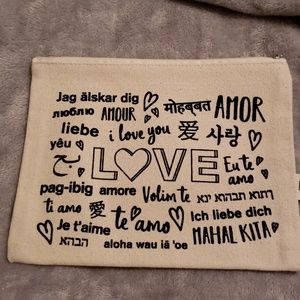 Jag älskar dig
люблю AMOUR मोहब्बत AMOR
liebe i love you 愛 사랑
yêu LOVE Eu te amo
pag-ibig amore Volim te
ti amo 愛 te amo Ich liebe dich
Je t'aime MAHAL KITA
aloha wau iā 'oe